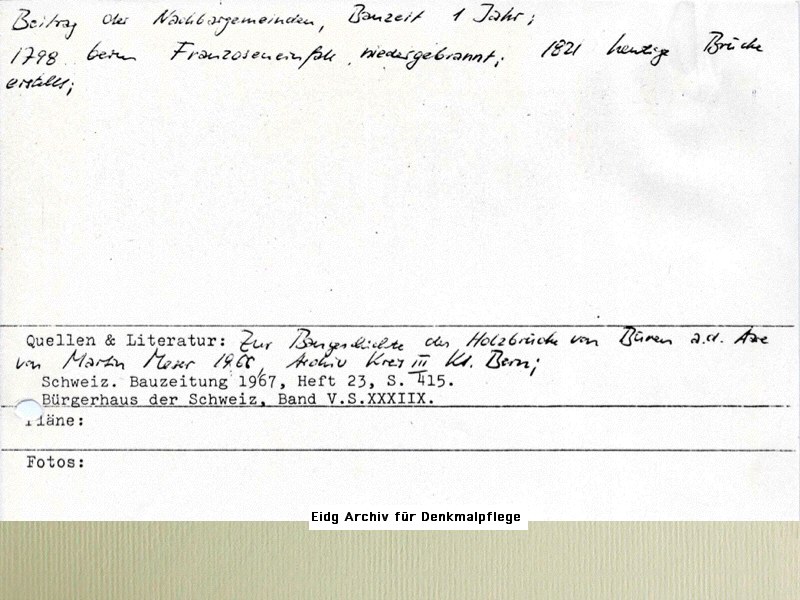 Beitrag der Nachbargemeinden, Bauzeit 1 Jahr;
1798 beim Franzoseneinfall niedergebrannt; 1821 heutige Brücke
erstellt;
Quellen & Literatur: Zur Baugeschichte der Holzbrücke von Büren a.d. Aare
von Martin Moser 1966, Archiv Kreis III Kt. Bern;
Schweiz. Bauzeitung 1967, Heft 23, S. 415.
Bürgerhaus der Schweiz, Band V.S.XXXIIX.
Pläne:
Fotos:
Eidg Archiv für Denkmalpflege